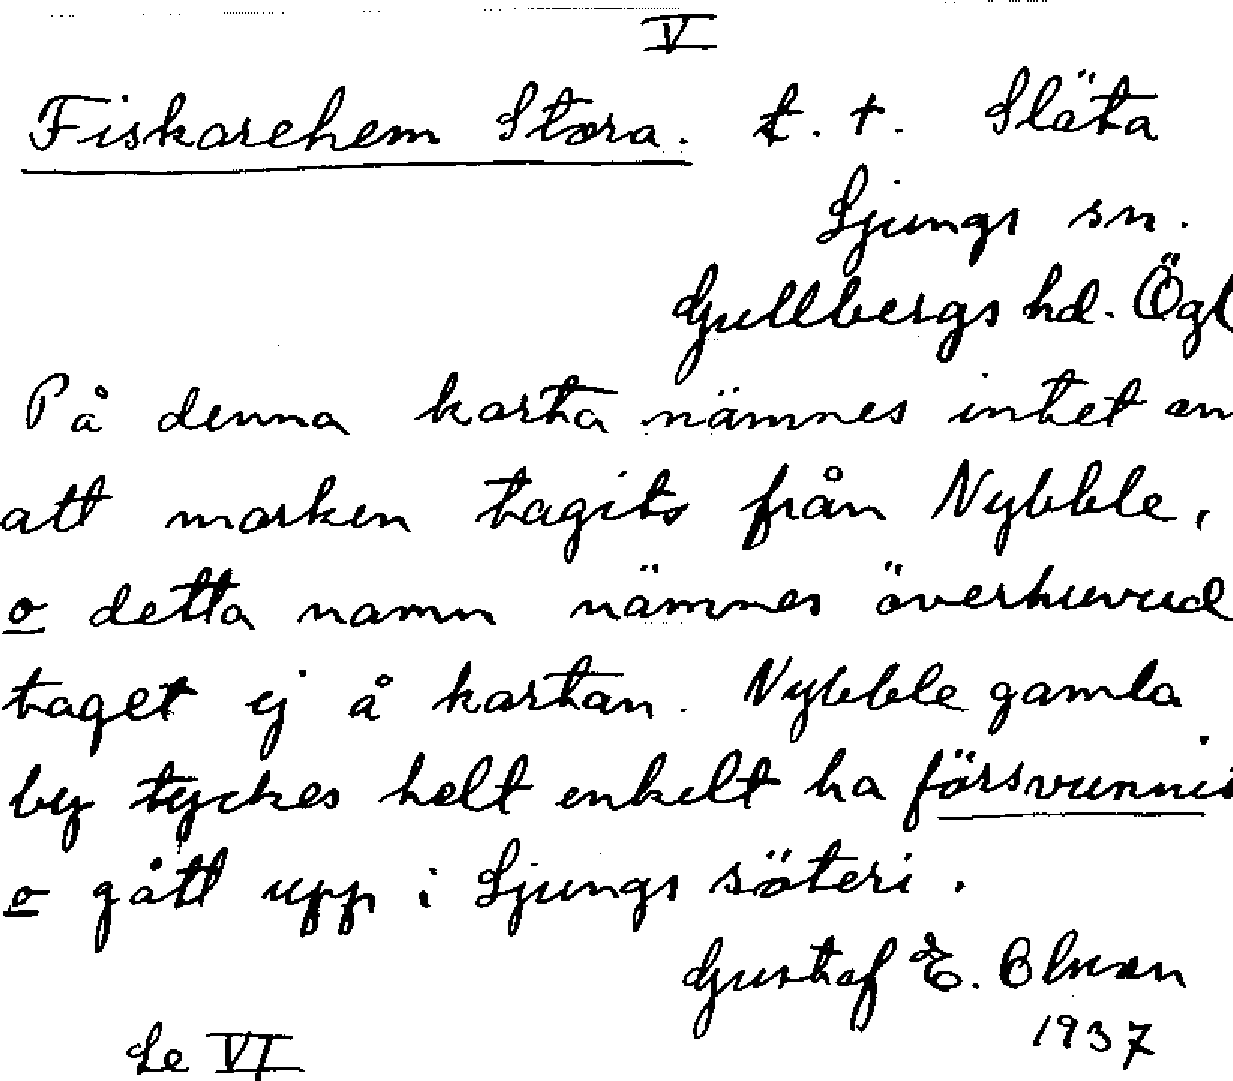 V
Fiskarehem Stora. t. t. Släta
Ljungs sn.
Gullbergs hd. Ögl
På denna karta nämnes intet om
att marken tagits från Nybble,
o detta namn nämnes överhuvud
taget ej å kartan. Nybble gamla
by tyckes helt enkelt ha försvunni
o gått upp i Ljungs säteri.
Gustaf E.
1937
Se VI